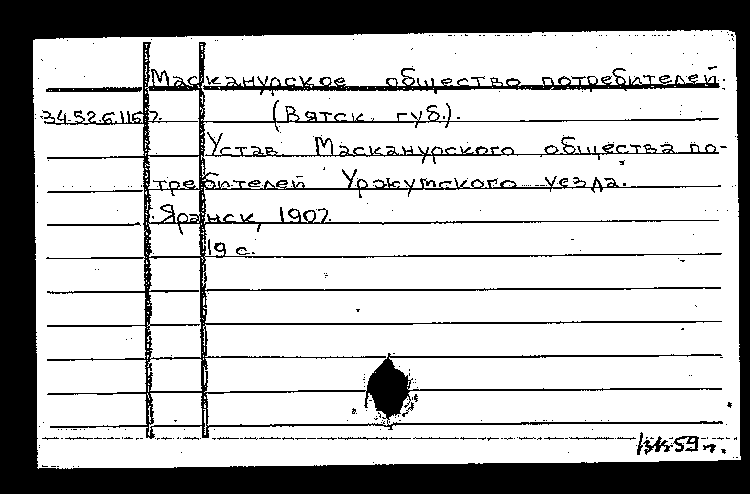 Масканурское общество потребителей.
34.52.6.116
(Вятск. губ.).
Устав Масканурского общества по-
требителей Уржумского уезда.
Яранск, 1907.
19 с.